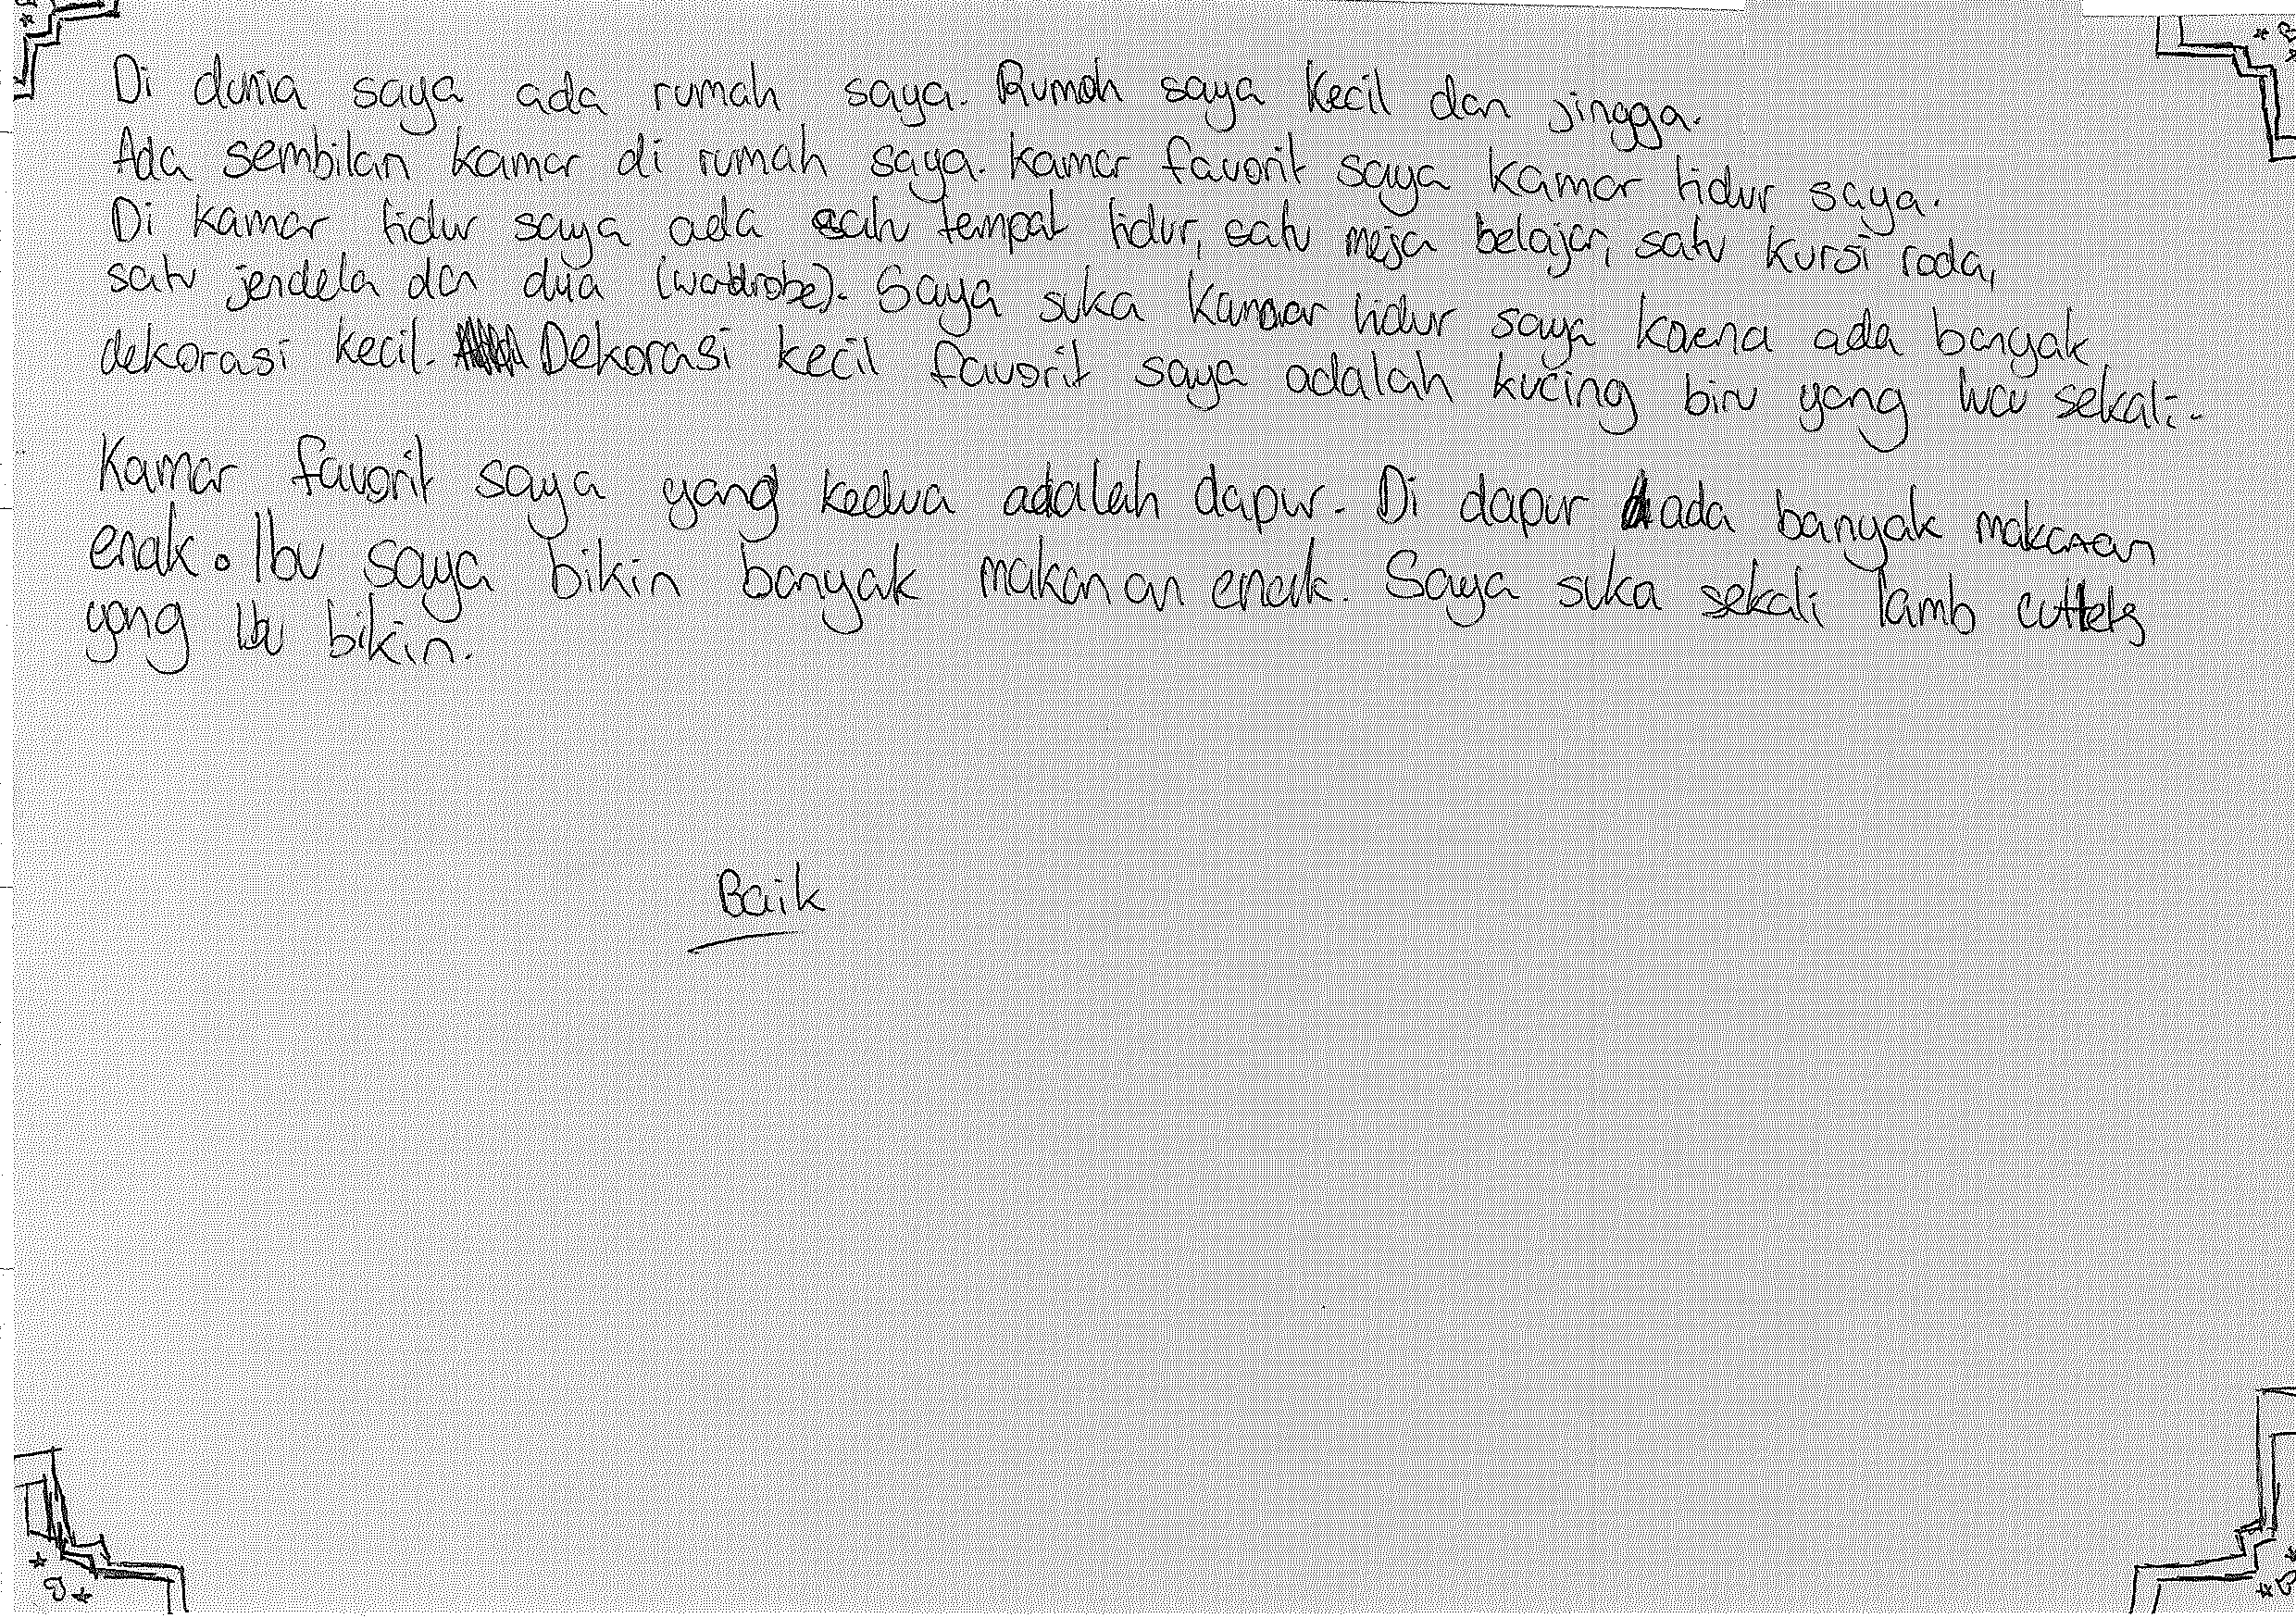 Di dunia saya ada rumah saya. Rumah saya kecil dan jingga.
Ada sembilan kamar di rumah saya. Kamar favorit saya kamar tidur saya.
Di kamar tidur saya ada satu tempat tidur, satu meja belajar, satu kursi roda,
satu jendela dan dua (wardrobe). Saya suka kamar tidur saya kaena ada banyak
dekorasi kecil. Dekorasi kecil favorit saya adalah kucing biru yang lucu sekali.
Kamar favorit saya yang kedua adalah dapur. Di dapur ada banyak makanan
enak. Ibu saya bikin banyak makanan enak. Saya suka sekali lamb cutlets
yang Ibu bikin.
Baik